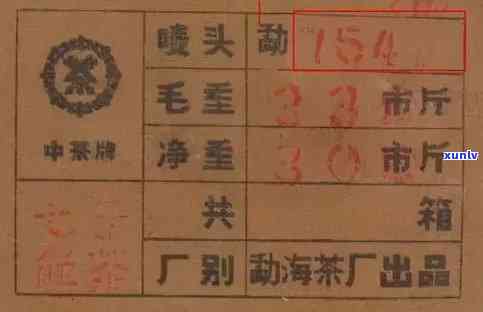 唛头 勐 154
毛重 33 市斤
中茶牌 净重 30 市斤
共 箱
七子
饼茶
厂别 勐海茶厂出品
xunlv